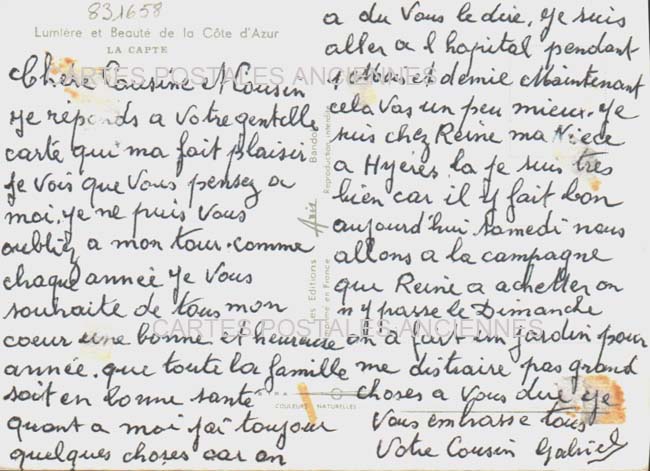 831658
Lumière et Beauté de la Côte d'Azur
LA CAPTE
Chère Cousine et Cousin
Je réponds a votre gentille
carte qui ma fait plaisir
Je vois que vous pensez a
moi. Je ne puis vous
oubliez a mon tour. comme
chaque année Je vous
souhaite de tous mon
coeur une bonne et heureuse
année. que toute la famille
soit en bonne santé
quant a moi j'ai toujour
quelques choses car on
a du vous le dire, Je suis
aller a l hopital pendant
1 Mois et demie Maintenant
cela vas un peu mieux. Je
suis chez Reine ma Nièce
a Hyères la je suis très
bien car il y fait bon
aujourd'hui samedi nous
allons a la campagne
que Reine a achetter on
n y passe le Dimanche
on a fait un jardin pour
me distraire pas grand
choses a vous dire Je
vous embrasse tous
Votre Cousin Gabriel
Les Editions Aris Bandol
Imprimé en France Reproduction interdite
COULEURS NATURELLES
CARTES POSTALES ANCIENNES
CARTES POSTALES ANCIENNES